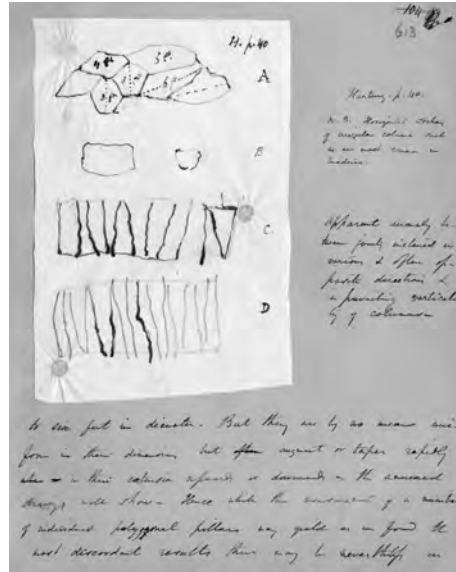 104
613
H. p. 40
A
B
C.
D
Hartung. p. 40.
N.B. Horizontal
of irregular columns such
as are most common in
Madeira.
Apparent
joints inclined in
various & often op-
posite directions &
a prevailing vertical-
ity of columns
to six feet in diameter. But they are by no means uni-
form in their dimensions but often augment or taper rapidly
in their extension upwards or downwards as the annexed
drawings will show. Hence while the measurement of a number
of individual polygonal pillars may yield as we found the
most discordant results there may be nevertheless an